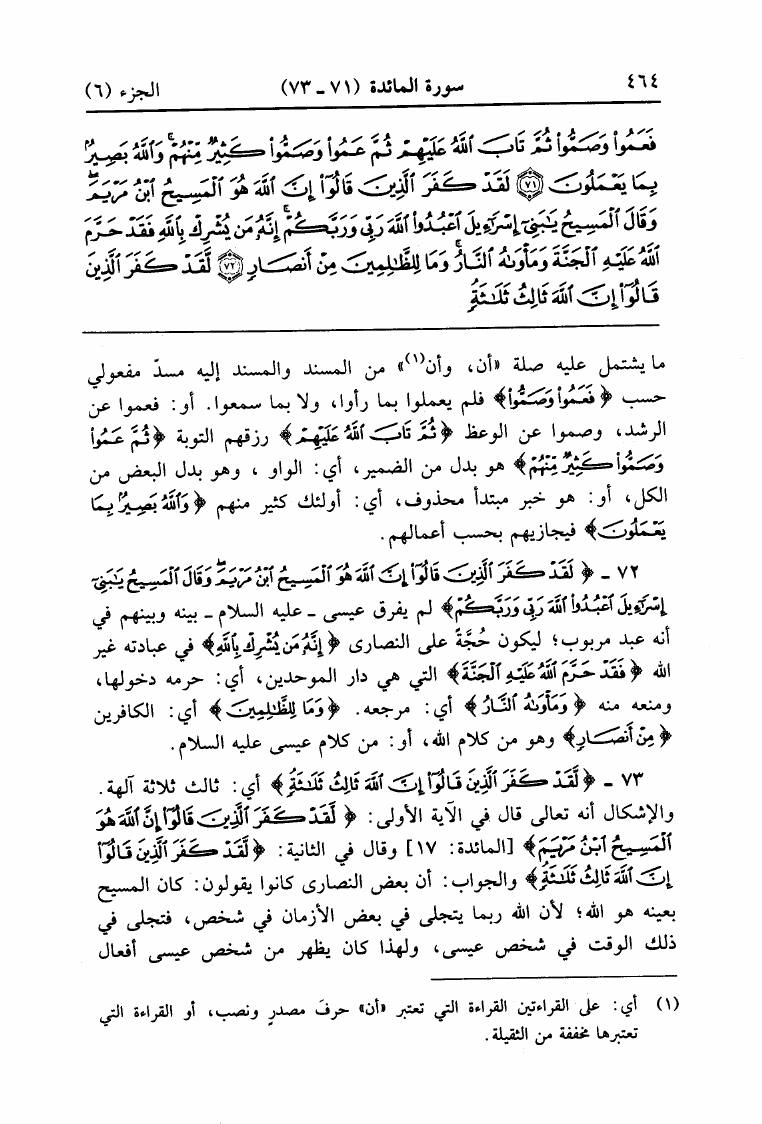 ٤٦٤ سورة المائدة (٧١ - ٧٣) الجزء (٦)
فَعَمُوا۟ وَصَمُّوا۟ ثُمَّ تَابَ ٱللَّهُ عَلَيْهِمْ ثُمَّ عَمُوا۟ وَصَمُّوا۟ كَثِيرٌ مِّنْهُمْ ۚ وَٱللَّهُ بَصِيرٌۢ
بِمَا يَعْمَلُونَ ﴿٧١﴾ لَقَدْ كَفَرَ ٱلَّذِينَ قَالُوٓا۟ إِنَّ ٱللَّهَ هُوَ ٱلْمَسِيحُ ٱبْنُ مَرْيَمَ ۖ
وَقَالَ ٱلْمَسِيحُ يَٰبَنِىٓ إِسْرَٰٓءِيلَ ٱعْبُدُوا۟ ٱللَّهَ رَبِّى وَرَبَّكُمْ ۖ إِنَّهُۥ مَن يُشْرِكْ بِٱللَّهِ فَقَدْ حَرَّمَ
ٱللَّهُ عَلَيْهِ ٱلْجَنَّةَ وَمَأْوَىٰهُ ٱلنَّارُ ۖ وَمَا لِلظَّٰلِمِينَ مِنْ أَنصَارٍ ﴿٧٢﴾ لَّقَدْ كَفَرَ ٱلَّذِينَ
قَالُوٓا۟ إِنَّ ٱللَّهَ ثَالِثُ ثَلَٰثَةٍ
ما يشتمل عليه صلة «أن، وأن(١)» من المسند والمسند إليه مسدّ مفعولي
حسب ﴿فَعَمُوا۟ وَصَمُّوا۟﴾ فلم يعملوا بما رأوا، ولا بما سمعوا. أو: فعموا عن
الرشد، وصموا عن الوعظ ﴿ثُمَّ تَابَ ٱللَّهُ عَلَيْهِمْ﴾ رزقهم التوبة ﴿ثُمَّ عَمُوا۟
وَصَمُّوا۟ كَثِيرٌ مِّنْهُمْ﴾ هو بدل من الضمير، أي: الواو ، وهو بدل البعض من
الكل، أو: هو خبر مبتدأ محذوف، أي: أولئك كثير منهم ﴿وَٱللَّهُ بَصِيرٌۢ بِمَا
يَعْمَلُونَ﴾ فيجازيهم بحسب أعمالهم.
٧٢ - ﴿لَقَدْ كَفَرَ ٱلَّذِينَ قَالُوٓا۟ إِنَّ ٱللَّهَ هُوَ ٱلْمَسِيحُ ٱبْنُ مَرْيَمَ ۖ وَقَالَ ٱلْمَسِيحُ يَٰبَنِىٓ
إِسْرَٰٓءِيلَ ٱعْبُدُوا۟ ٱللَّهَ رَبِّى وَرَبَّكُمْ﴾ لم يفرق عيسى - عليه السلام - بينه وبينهم في
أنه عبد مربوب؛ ليكون حُجَّةً على النصارى ﴿إِنَّهُۥ مَن يُشْرِكْ بِٱللَّهِ﴾ في عبادته غير
الله ﴿فَقَدْ حَرَّمَ ٱللَّهُ عَلَيْهِ ٱلْجَنَّةَ﴾ التي هي دار الموحدين، أي: حرمه دخولها،
ومنعه منه ﴿وَمَأْوَىٰهُ ٱلنَّارُ﴾ أي: مرجعه. ﴿وَمَا لِلظَّٰلِمِينَ﴾ أي: الكافرين
﴿مِنْ أَنصَارٍ﴾ وهو من كلام الله، أو: من كلام عيسى عليه السلام.
٧٣ - ﴿لَّقَدْ كَفَرَ ٱلَّذِينَ قَالُوٓا۟ إِنَّ ٱللَّهَ ثَالِثُ ثَلَٰثَةٍ﴾ أي: ثالث ثلاثة آلهة.
والإشكال أنه تعالى قال في الآية الأولى: ﴿لَقَدْ كَفَرَ ٱلَّذِينَ قَالُوٓا۟ إِنَّ ٱللَّهَ هُوَ
ٱلْمَسِيحُ ٱبْنُ مَرْيَمَ﴾ [المائدة: ١٧] وقال في الثانية: ﴿لَّقَدْ كَفَرَ ٱلَّذِينَ قَالُوٓا۟
إِنَّ ٱللَّهَ ثَالِثُ ثَلَٰثَةٍ﴾ والجواب: أن بعض النصارى كانوا يقولون: كان المسيح
بعينه هو الله؛ لأن الله ربما يتجلى في بعض الأزمان في شخص، فتجلى في
ذلك الوقت في شخص عيسى، ولهذا كان يظهر من شخص عيسى أفعال
(١) أي: على القراءتين القراءة التي تعتبر «أن» حرفَ مصدرٍ ونصب، أو القراءة التي
تعتبرها مخففة من الثقيلة.